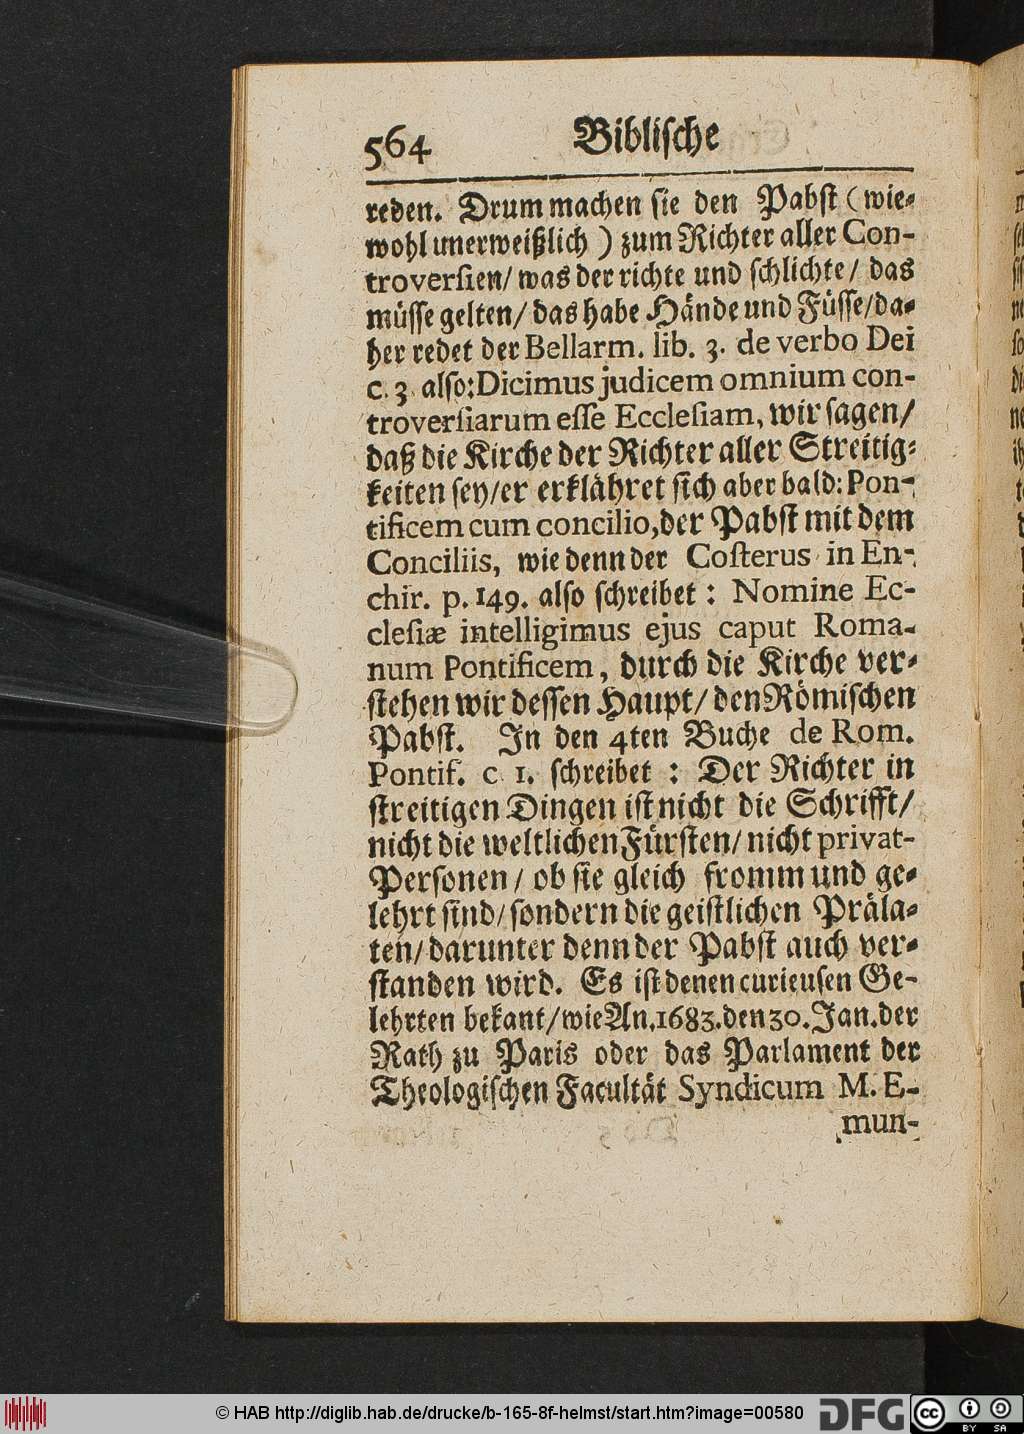 564 Biblische
reden. Drum machen sie den Pabst (wie-
wohl unerweißlich) zum Richter aller Con-
troversien/ was der richte und schlichte/ das
müsse gelten/ das habe Hände und Füsse/ da-
her redet der Bellarm. lib. 3. de verbo Dei
c. 3. also: Dicimus judicem omnium con-
troversiarum esse Ecclesiam, wir sagen/
daß die Kirche der Richter aller Streitig-
keiten sey/ er erklähret sich aber bald: Pon-
tificem cum concilio, der Pabst mit dem
Conciliis, wie denn der Costerus in En-
chir. p. 149. also schreibet: Nomine Ec-
clesiæ intelligimus ejus caput Roma-
num Pontificem, durch die Kirche ver-
stehen wir dessen Haupt/ den Römischen
Pabst. In den 4ten Buche de Rom.
Pontif. c 1. schreibet: Der Richter in
streitigen Dingen ist nicht die Schrifft/
nicht die weltlichen Fürsten/ nicht privat-
Personen/ ob sie gleich fromm und ge-
lehrt sind/ sondern die geistlichen Präla-
ten/ darunter denn der Pabst auch ver-
standen wird. Es ist denen curieusen Ge-
lehrten bekant/ wie An. 1683. den 30. Jan. der
Rath zu Paris oder das Parlament der
Theologischen Facultät Syndicum M. E-
mun-
© HAB http://diglib.hab.de/drucke/b-165-8f-helmst/start.htm?image=00580
DFG
cc BY SA